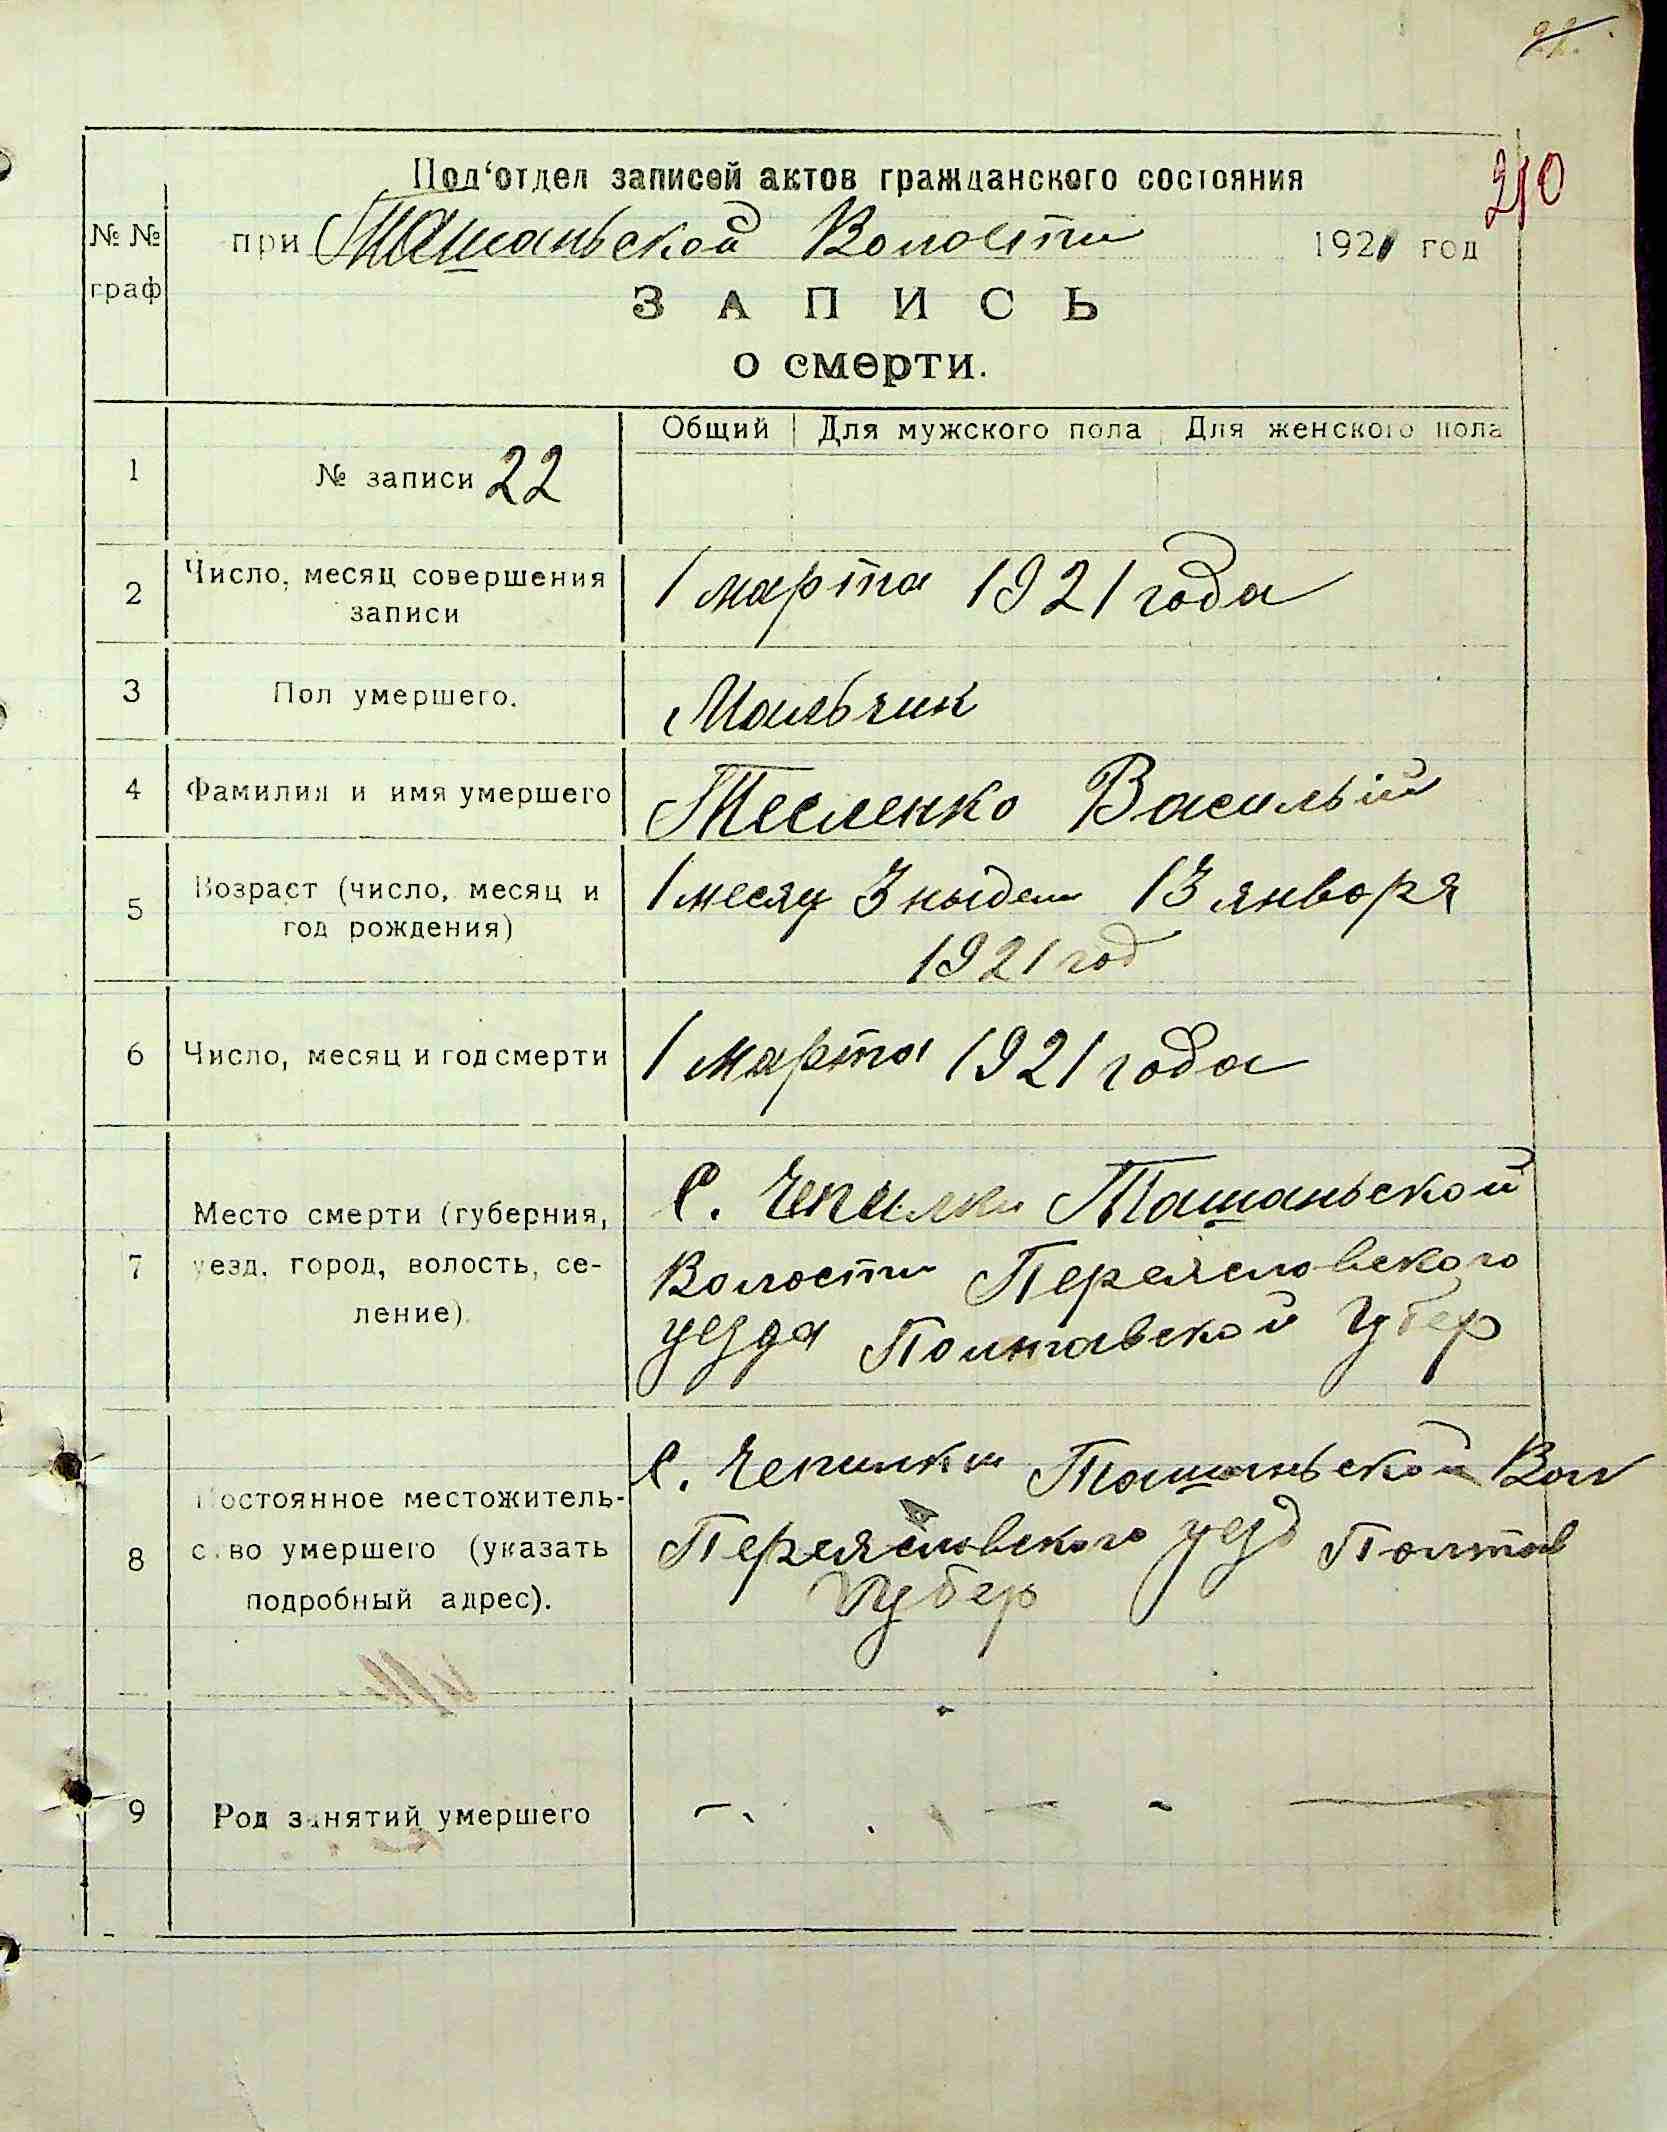 22.
210
Под'отдел записей актов гражданского состояния
при Ташаньской Волости 1921 год
№ №
граф
ЗАПИСЬ
о смерти.
Общий Для мужского пола Для женского пола
1 № записи 22
2 Число, месяц совершения
записи
1 марта 1921 года
3 Пол умершего.
Мальчик
4 Фамилия и имя умершего
Тесленко Василый
5 Возраст (число, месяц и
год рождения)
1 месяц 3 ныдели 13 января
1921 год
6 Число, месяц и год смерти
1 марта 1921 года
7 Место смерти (губерния,
уезд, город, волость, се-
ление).
С. Чепилки Ташаньской
Волости Переясловского
уезда Полтавской Губер
8 Постоянное местожитель-
ство умершего (указать
подробный адрес).
С. Чепилки Ташаньской Вол
Переясловского уезд Полтав
Губер
9 Род занятий умершего